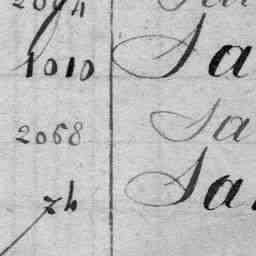 2094 Sa
1010 Sa
2068 Sa
74 Sa